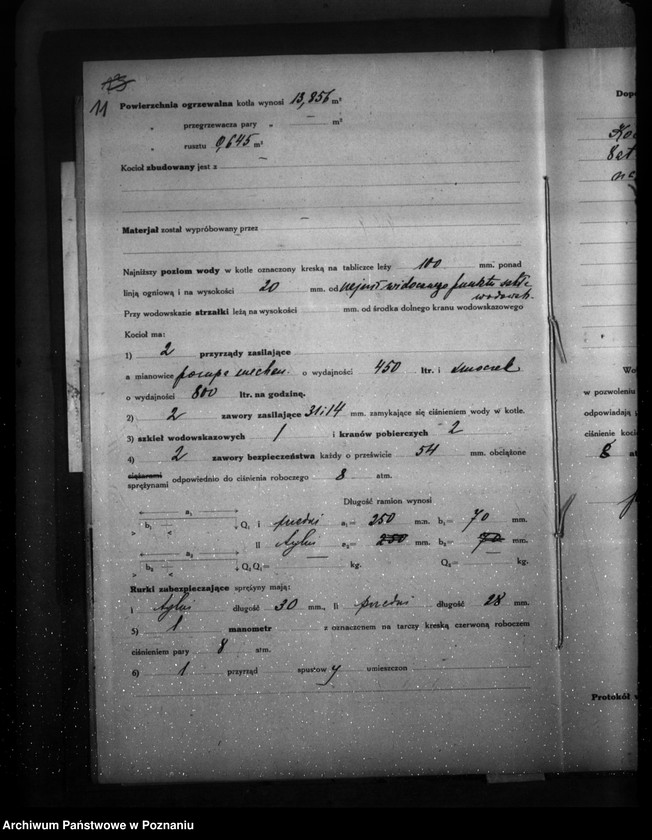 11
Powierzchnia ogrzewalna kotła wynosi 13,856 m²
„ przegrzewacza pary „ — m²
„ rusztu 0,645 m²
Kocioł zbudowany jest z —
Materjał został wypróbowany przez —
Najniższy poziom wody w kotle oznaczony kreską na tabliczce leży 100 mm. ponad
linją ogniową i na wysokości 20 mm. od najniż. widocznego punktu szkła
wodowsk.
Przy wodowskazie strzałki leżą na wysokości mm. od środka dolnego kranu wodowskazowego
Kocioł ma:
1) 2 przyrządy zasilające
a mianowicie pompa mechan. o wydajności 450 ltr. i smoczek
o wydajności 800 ltr. na godzinę.
2) 2 zawory zasilające 31 i 14 mm. zamykające się ciśnieniem wody w kotle.
3) szkieł wodowskazowych 1 i kranów pobierczych 2
4) 2 zawory bezpieczeństwa każdy o prześwicie 54 mm. obciążone
ciężarami
sprężynami odpowiednio do ciśnienia roboczego 8 atm.
Długość ramion wynosi
a₁
b₁ Q₁ i przedni a₁= 250 mm. b₁= 70 mm.
II tylni a₂= 250 mm. b₂= 70 mm.
a₂
b₂ Q₂ Q₁= — kg. Q₂= — kg.
Rurki zabezpieczające sprężyny mają:
i tylni długość 30 mm., II przedni długość 28 mm.
5) 1 manometr z oznaczonem na tarczy kreską czerwoną roboczem
ciśnieniem pary 8 atm.
6) 1 przyrząd spustowy umieszczon
Dop
na
Wo
w pozwoleniu
odpowiadają
ciśnienie koc
8 at
Protokół
Archiwum Państwowe w Poznaniu